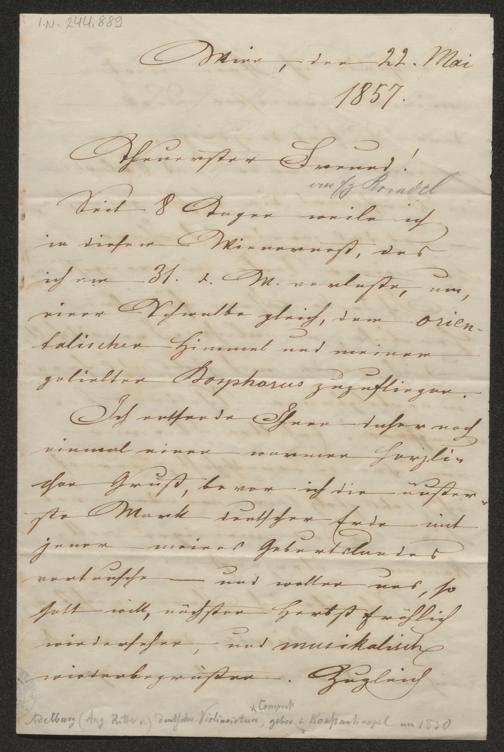 I.N. 244.889
Wien, den 22. Mai
1857.
Theuerster Freund!
Seit 8 Tagen weile ich
in diesem Wienernest, das
ich am 31. d. M. verlasse, um,
einer Schwalbe gleich, dem orien-
talischen Himmel und meinem
geliebten Bosphorus zuzufliegen.
Ich entsende Ihnen daher noch
einmal einen warmen herzli-
chen Gruß, bevor ich die äußer-
ste Mark deutscher Erde mit
jener meines Geburtslandes
vertausche – und wollen uns, so
Gott will, nächsten Herbst fröhlich
wiedersehen, und musikalisch
wiederbegrüßen. Zugleich
Adelburg (Aug. Ritter v.) deutscher Violinvirtuos, Compost
gebor. i. Konstantinopel um 1830